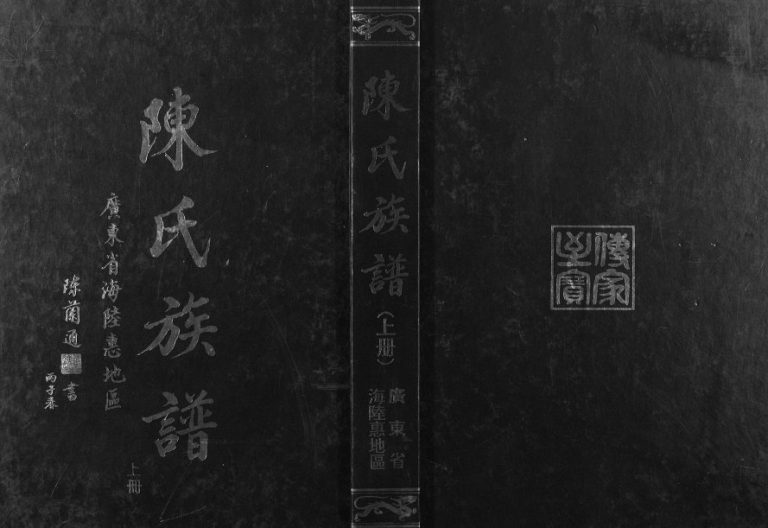 陳氏族譜
上冊
廣東省海陸惠地區
陳蘭通
書
丙子春
陳氏族譜(上冊)
廣東省
海陸惠地區
傳家
至寶